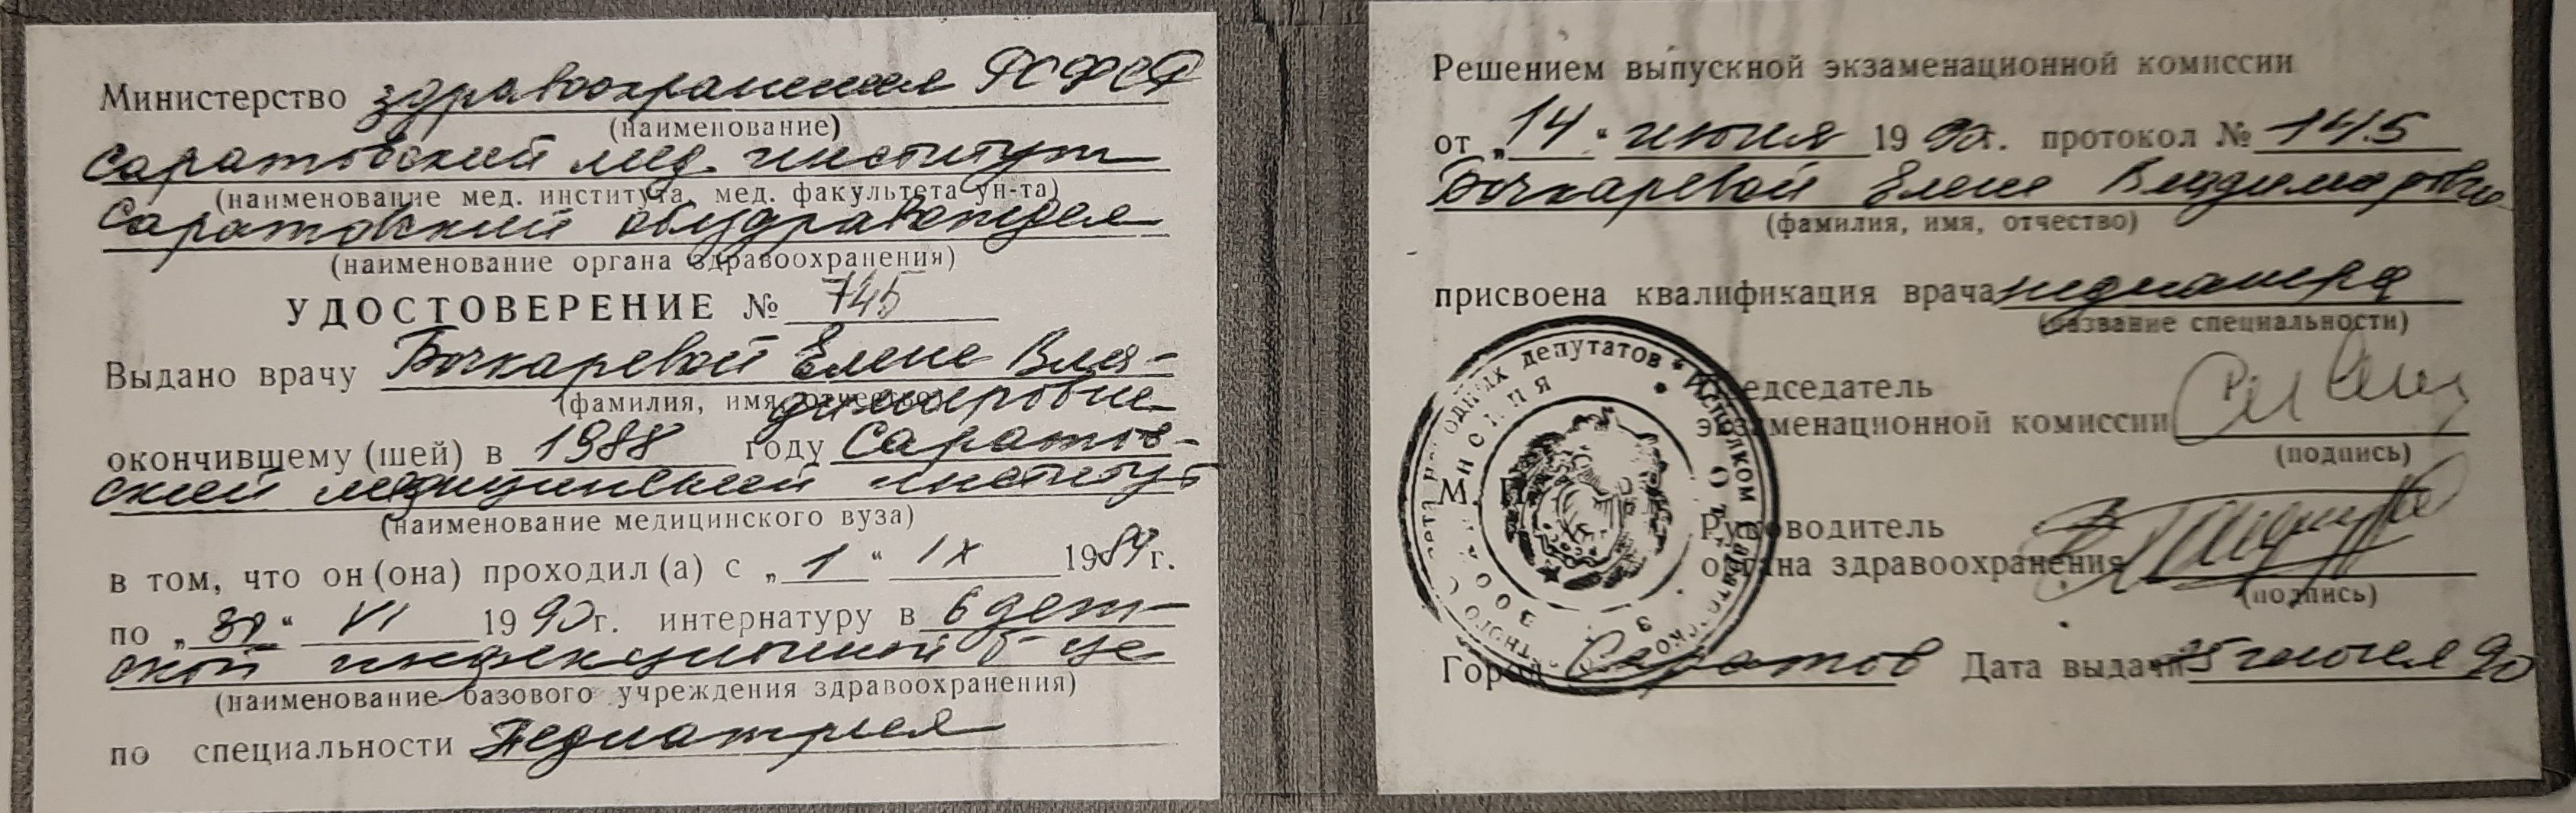 Министерство здравоохранения РСФСР
(наименование)
Саратовский мед. институт
(наименование мед. института, мед. факультета ун-та)
Саратовский облздравотдел
(наименование органа здравоохранения)
УДОСТОВЕРЕНИЕ № 745
Выдано врачу Бочкаревой Елене Вла-
(фамилия, имя, отчество)
димировне
окончившему (шей) в 1988 году Саратов-
ский медицинский институт
(наименование медицинского вуза)
в том, что он (она) проходил (а) с „1“ IX 1989 г.
по „30“ VI 1990 г. интернатуру в 6 дет-
ской инфекционной б-це
(наименование базового учреждения здравоохранения)
по специальности Педиатрия
Решением выпускной экзаменационной комиссии
от „14“ июня 1990 г. протокол № 145
Бочкаревой Елене Владимировне
(фамилия, имя, отчество)
присвоена квалификация врача педиатра
(название специальности)
Председатель
экзаменационной комиссии
(подпись)
М. П.
Руководитель
органа здравоохранения
(подпись)
Город Саратов Дата выдачи 25 июня 90
депутатов * Исполком